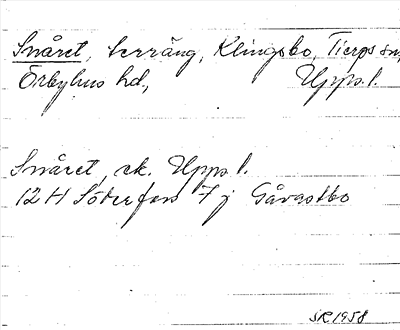 Snåret, terräng, Klingsbo, Tierps sn,
Örbyhus hd., Upps. l.
Snåret, ek. Upps l.
12 H Söderfors 7 j Gåvastbo
SR 1958